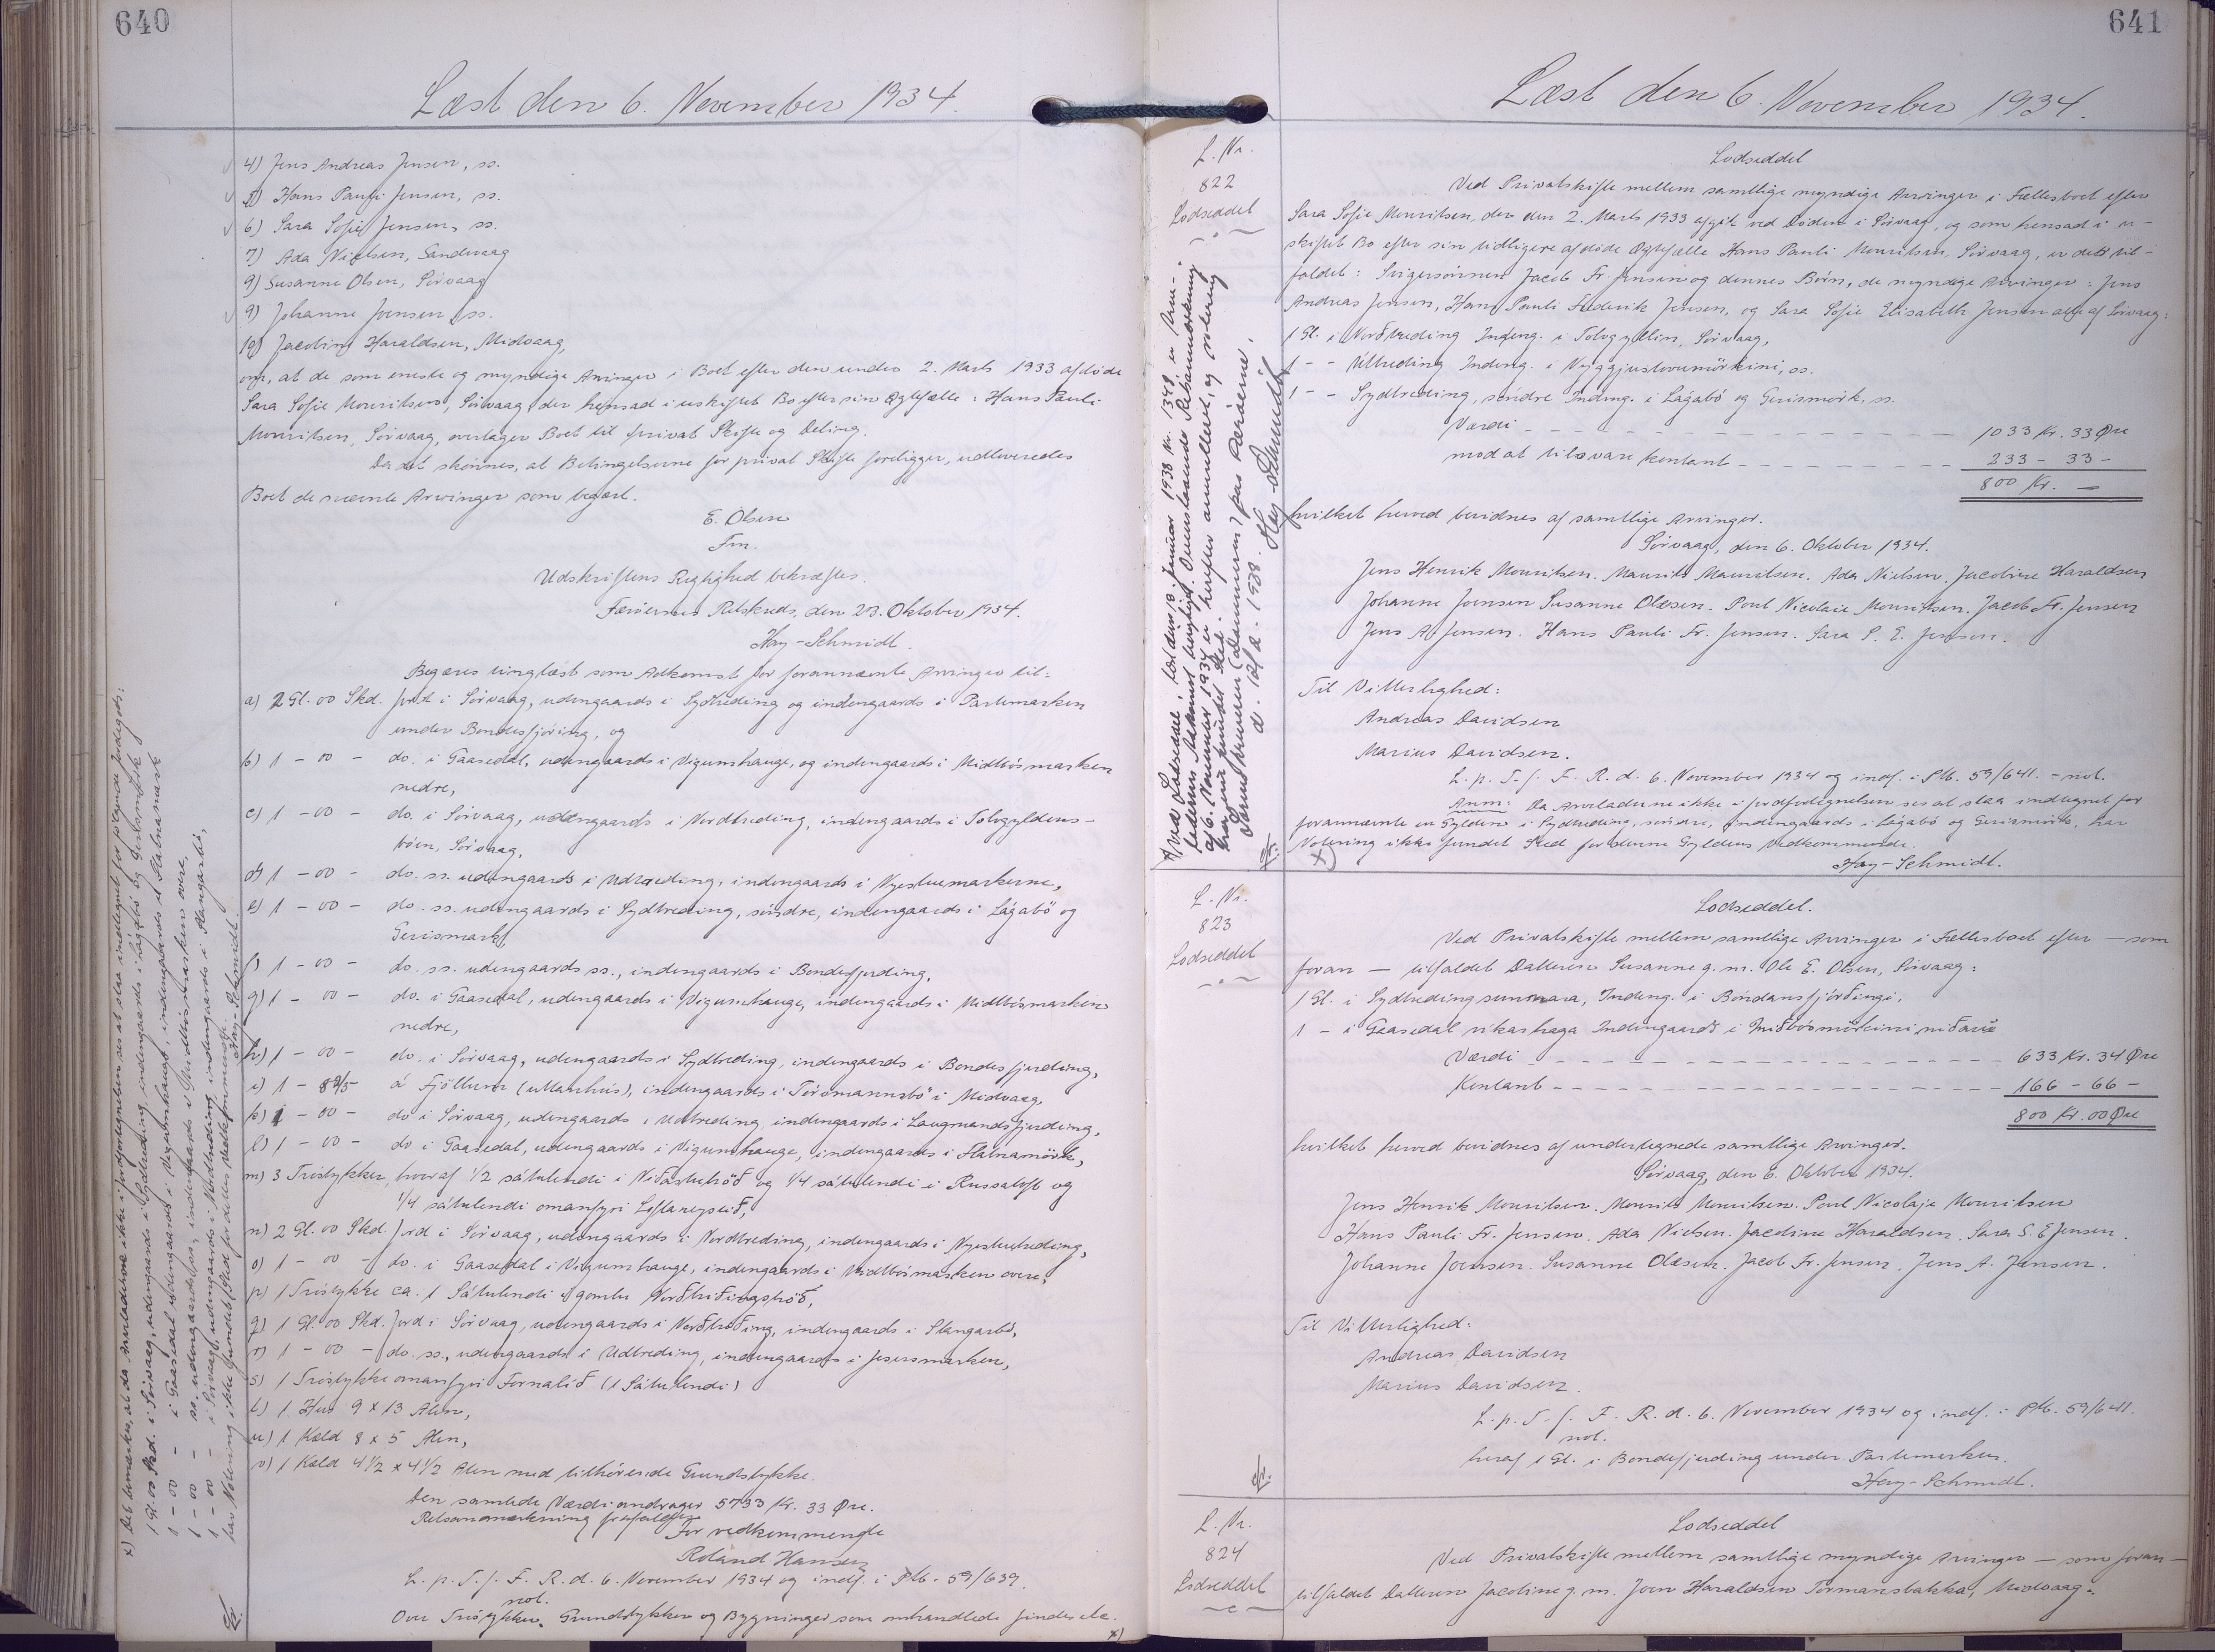 640
Læst den 6. November 1934.
4) Jens Andreas Jensen, ss.
5) Hans Pauli Jensen, ss.
6) Sara Sofie Jensen, ss.
7) Ada Nielsen, Sandvaag
9) Susanne Olsen, Sörvaag
9) Johanne Joensen, ss.
10) Jacobine Haraldsen, Midvaag,
om, at de som eneste og myndige Arvinger i Boet efter den under 2. Marts 1933 afdöde
Sara Sofie Mouritsen, Sörvaag, der hensad i uskiftet Bo efter sin Ægtefælle: Hans Pauli
Mouritsen, Sörvaag, overtager Boet til privat Skifte og Deling.
Da det skönnes, at Betingelserne for privat Skifte foreligger, udleveredes
Boet de nævnte Arvinger som begært.
E. Olsen
Fm.
Udskriftens Rigtighed bekræftes.
Færöernes Retskreds, den 23. Oktober 1934.
Hay-Schmidt.
Begæres tinglæst som Adkomst for forannævnte Arvinger til:
a) 2 Gl. 00 Skd. Jord i Sörvaag, udengaards i Sydtreding og indengaards i Partemarken
under Bondesfjöring, og
b) 1 - 00 - do. i Gaasedal, udengaards i Vigumhauge, og indengaards i Midtbömarken
nedre,
c) 1 - 00 - do. i Sörvaag, udengaards i Nordtreding, indengaards i Tolvgyldens-
böen, Sörvaag,
d) 1 - 00 - do. ss. udengaards i Udtreding, indengaards i Nyestuemarkerne,
e) 1 - 00 - do. ss. udengaards i Sydtreding, söndre, indengaards i Lágabö og
Gerismark,
f) 1 - 00 - do. ss. udengaards ss., indengaards i Bondesfjerding,
g) 1 - 00 - do. i Gaasedal, udengaards i Vigumhauge, indengaards i Midtbömarken
nedre,
h) 1 - 00 - do. i Sörvaag, udengaards i Sydtreding, indengaards i Bondesfjerding,
i) 1 - 8 3/5 - á Fjöllum (uttanhús), indengaards i Tórmannsbö i Midvaag,
k) 1 - 00 - do i Sörvaag, udengaards i Udtreding, indengaards i Laugmandsfjerding,
l) 1 - 00 - do i Gaasedal, udengaards i Vigumhauge, indengaards i Flatnamörk,
m) 3 Tröstykker, hvoraf 1/2 sátulendi i og 1/4 sátulendi i Russaloft og
1/4 sátulendi omanfyri
n) 2 Gl. 00 Skd. Jord i Sörvaag, udengaards i Nordtreding, indengaards i Nyestuetreding,
o) 1 - 00 - do. i Gaasedal i Vigumhauge, indengaards i Midtbömarken overe,
p) 1 Tröstykke ca. 1 Sátulendi i gomlu Norðtriðingströð,
q) 1 Gl. 00 Skd. Jord i Sörvaag, udengaards i Norðtreðing, indengaards i Slangarbö,
r) 1 - 00 - do. ss., udengaards i Udtreding, indengaards i Jesersmarken,
s) 1 Tröstykke omanfyri Fornalið (1 Sátulendi)
t) 1 Hus 9 x 13 Alen,
u) 1 Kæld 8 x 5 Alen,
v) 1 Kæld 4 1/2 x 4 1/2 Alen med tilhörende Grundstykke.
Den samlede Værdi andrager 5733 Kr. 33 Öre.
Retsanmærkning frafaldes
For vedkommende
Roland Hansen
L. p. T. f. F. R. d. 6. November 1934 og indf. i Ptb. 59/639.
not.
Over Tröstykker, Grundstykker og Bygninger som omhandlede findes ele.
x)
x) Det bemærkes, at da Arveladerne ikke i Jordfortegnelsen ses at staa indtegnet for fölgende Jordegods:
1 Gl. 00 Skd. i Sörvaag, udengaards i Sydtreding, indengaards i Lágabö og Gerismörk
1 - 00 - i Gaasedal udengaards i Vigumhauge, indengaards i Flatnamark
1 - 00 - ss. udengaards ss., indengaards i Midtbömarken overe,
1 - 00 - i Sörvaag, udengaards i Nordtreding indengaards i Slangarbö,
har Notering ikke fundet Sted for dettes Vedkommende.
Hay-Schmidt.
641
Læst den 6. November 1934.
L. Nr.
822
Lodseddel
Lodseddel
Ved Privatskifte mellem samtlige myndige Arvinger i Fællesboet efter
Sara Sofie Mouritsen, der den 2. Marts 1933 afgik ved Döden i Sörvaag, og som hensad i u-
skiftet Bo efter sin tidligere afdöde Ægtefælle Hans Pauli Mouritsen, Sörvaag, er det til-
faldet: Svigersönnen Jacob Fr. Jensen og dennes Börn, de myndige Arvinger: Jens
Andreas Jensen, Hans Pauli Frederik Jensen, og Sara Sofie Elisabeth Jensen alle af Sörvaag:
1 Gl. i Norðtreding Indeng. i Tolvgyllin, Sörvaag,
1 - - Úttreding Indeng. i Nýggjustovumörkini, ss.
1 - - Sydtreding, söndre Indeng. i Lágabö og Gerismörk. ss.
Værdi 1033 Kr. 33 Øre
mod at tilsvare kontant 233 - 33 -
800 Kr. -
hvilket herved bevidnes af samtlige Arvinger.
Sörvaag, den 6. Oktober 1934.
Jens Henrik Mouritsen. Mourits Mouritsen. Ada Nielsen. Jacobine Haraldsen
Johanne Joensen Susanne Olesen. Poul Nicolaie Mouritsen. Jacob Fr. Jensen
Jens A. Jensen. Hans Pauli Fr. Jensen. Sara S. E. Jensen.
Til Vitterlighed:
Andreas Davidsen
Marius Davidsen.
L. p. T. f. F. R. d. 6. November 1934 og indf. i Ptb. 59/641. - not.
Anm: Da Arveladerne ikke i Jordfortegnelsen ses at staa indtegnet for
forannævnte en Gylden i Sydtreding, söndre, indengaards i Lágabö og Gerismörk, har
Notering ikke fundet Sted for denne Gyldens Vedkommende.
x)
Hay-Schmidt.
Hay-Schmidt
L. Nr.
823
Lodseddel
Lodseddel.
Ved Privatskifte mellem samtlige Arvinger i Fællesboet efter — som
foran — tilfaldet Datteren Susanne g. m. Ole E. Olsen, Sörvaag:
1 Gl. i Sydtreding sunnara, Indeng. i Bóndansfjórðingi,
1 - i Gaasedal víkarhaga Indengaards i miðbömörkini niðaru
Værdi 633 Kr. 34 Øre
Kontant 166 - 66 -
800 Kr. 00 Øre
hvilket herved bevidnes af undertegnede samtlige Arvinger.
Sörvaag, den 6. Oktober 1934.
Jens Henrik Mouritsen. Mourits Mouritsen. Poul Nicolaje Mouritsen
Hans Pauli Fr. Jensen. Ada Nielsen. Jacobine Haraldsen. Sara S. E Jensen.
Johanne Joensen. Susanne Olesen. Jacob Fr. Jensen. Jens A. Jensen.
Til Vitterlighed:
Andreas Davidsen
Marius Davidsen.
L. p. T. f. F. R. d. 6. November 1934 og indf. i Ptb. 59/641.
not.
heraf 1 Gl. i Bondefjerding under Partemarken.
Hay-Schmidt.
L. Nr.
824
Lodseddel
Lodseddel
Ved Privatskifte mellem samtlige myndige Arvinger — som foran —
tilfaldet Datteren Jacobine g. m. Joen Haraldsen Tormansbakka, Midvaag: